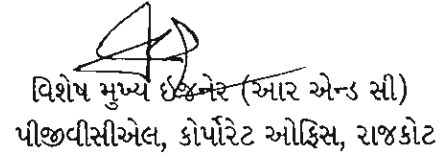 વિશેષ મુખ્ય ઇજનેર (આર એન્ડ સી)
પીજીવીસીએલ, કોર્પોરેટ ઓફિસ, રાજકોટ